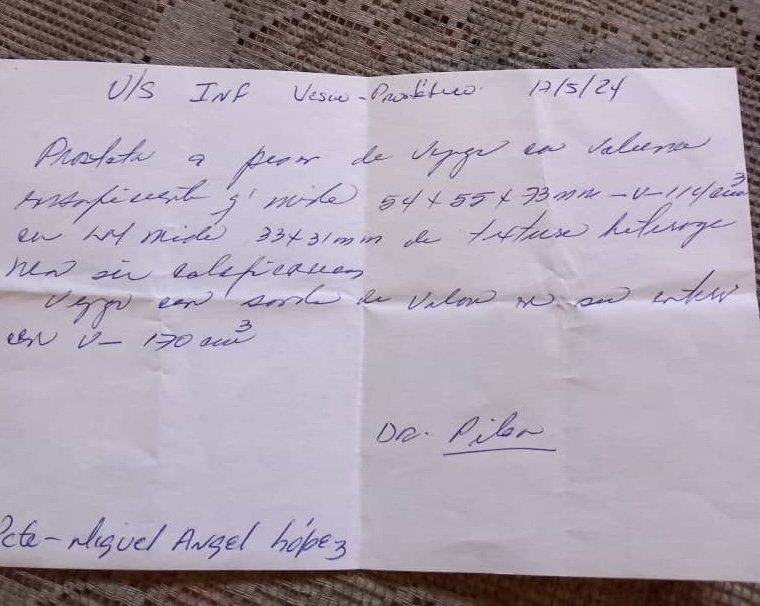 U/S Inf Vesico-Prostático. 17/5/24
Prostata a pesar de vejiga con volumen
insuficiente q' mide 54 x 55 x 73 mm - V- 114 cm³
en LM mide 33 x 31 mm de textura heteroge
nea sin calcificaciones
Vejiga con sonda de Valon en su interior
con V- 170 cm³
Dr. Pilar
Pcte- Miguel Angel López